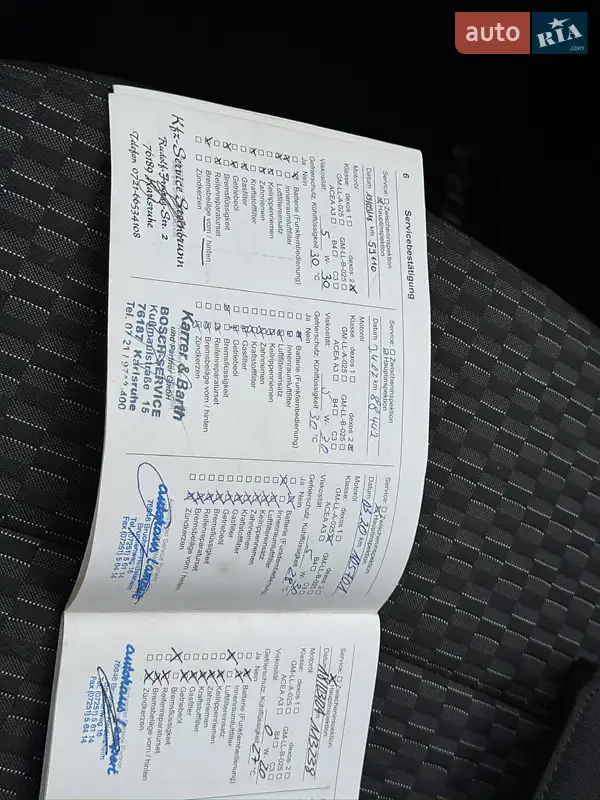 auto RIA .com
6 Servicebestätigung
Service: Zwischeninspektion
Hauptinspektion
km 59110
Motoröl
Klasse: dexos 1 dexos 2
GM-LL-A-025 GM-LL-B-025
ACEA A3 B4 C3
Viskosität: 5 W- 30
Gefrierschutz, Kühlflüssigkeit 30 °C
Ja Nein
Batterie (Funkfernbedienung)
Innenraumluftfilter
Luftfiltereinsatz
Keilrippenriemen
Zahnriemen
Kraftstofffilter
Gasfilter
Getriebeöl
Bremsflüssigkeit
Reifenreparaturset
Bremsbeläge vorn / hinten
Zündkerzen
Kfz-Service
Str. 2
76189 Karlsruhe
Telefon 0721-66534108
Service: Zwischeninspektion
Hauptinspektion
Datum km 88402
Motoröl
Klasse: dexos 1 dexos 2
GM-LL-A-025 GM-LL-B-025
ACEA A3 B4 C3
Viskosität: W-
Gefrierschutz, Kühlflüssigkeit 30 °C
Ja Nein
Batterie (Funkfernbedienung)
Innenraumluftfilter
Luftfiltereinsatz
Keilrippenriemen
Zahnriemen
Kraftstofffilter
Gasfilter
Getriebeöl
Bremsflüssigkeit
Reifenreparaturset
Bremsbeläge vorn / hinten
Zündkerzen
Karrer & Barth
BOSCH-SERVICE
15
76187 Karlsruhe
Service: Zwischeninspektion
Hauptinspektion
Datum km
Motoröl
Klasse: dexos 1 dexos 2
GM-LL-A-025 GM-LL-B-025
ACEA A3 B4 C3
Viskosität: 5 W- 30
Gefrierschutz, Kühlflüssigkeit 28 °C
Ja Nein
Batterie (Funkfernbedienung)
Innenraumluftfilter
Luftfiltereinsatz
Keilrippenriemen
Zahnriemen
Kraftstofffilter
Gasfilter
Getriebeöl
Bremsflüssigkeit
Reifenreparaturset
Bremsbeläge vorn / hinten
Zündkerzen
autohaus
76646 Bruchsal
Service: Zwischeninspektion
Hauptinspektion
Datum km 113238
Motoröl
Klasse: dexos 1 dexos 2
GM-LL-A-025 GM-LL-B-025
ACEA A3 B4 C3
Viskosität: 0 W- 20
Gefrierschutz, Kühlflüssigkeit 27 °C
Ja Nein
Batterie (Funkfernbedienung)
Innenraumluftfilter
Luftfiltereinsatz
Keilrippenriemen
Zahnriemen
Kraftstofffilter
Gasfilter
Getriebeöl
Bremsflüssigkeit
Reifenreparaturset
Bremsbeläge vorn / hinten
Zündkerzen
autohaus
(07251) 5 61 14
Fax (07251) 5 64 14